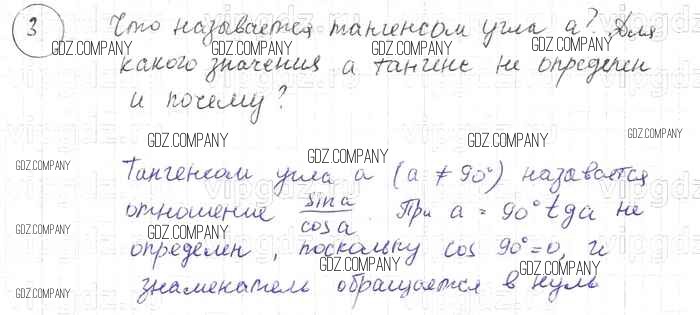 3 Что называется тангенсом угла a? Для
какого значения a тангенс не определен
и почему?
Тангенсом угла a (a ≠ 90°) называется
отношение sin a / cos a. При a = 90° tg a не
определен, поскольку cos 90° = 0, и
знаменатель обращается в нуль
GDZ.COMPANY
GDZ.COMPANY
GDZ.COMPANY
GDZ.COMPANY
GDZ.COMPANY
GDZ.COMPANY
GDZ.COMPANY
GDZ.COMPANY
GDZ.COMPANY
GDZ.COMPANY
GDZ.COMPANY
GDZ.COMPANY
GDZ.COMPANY